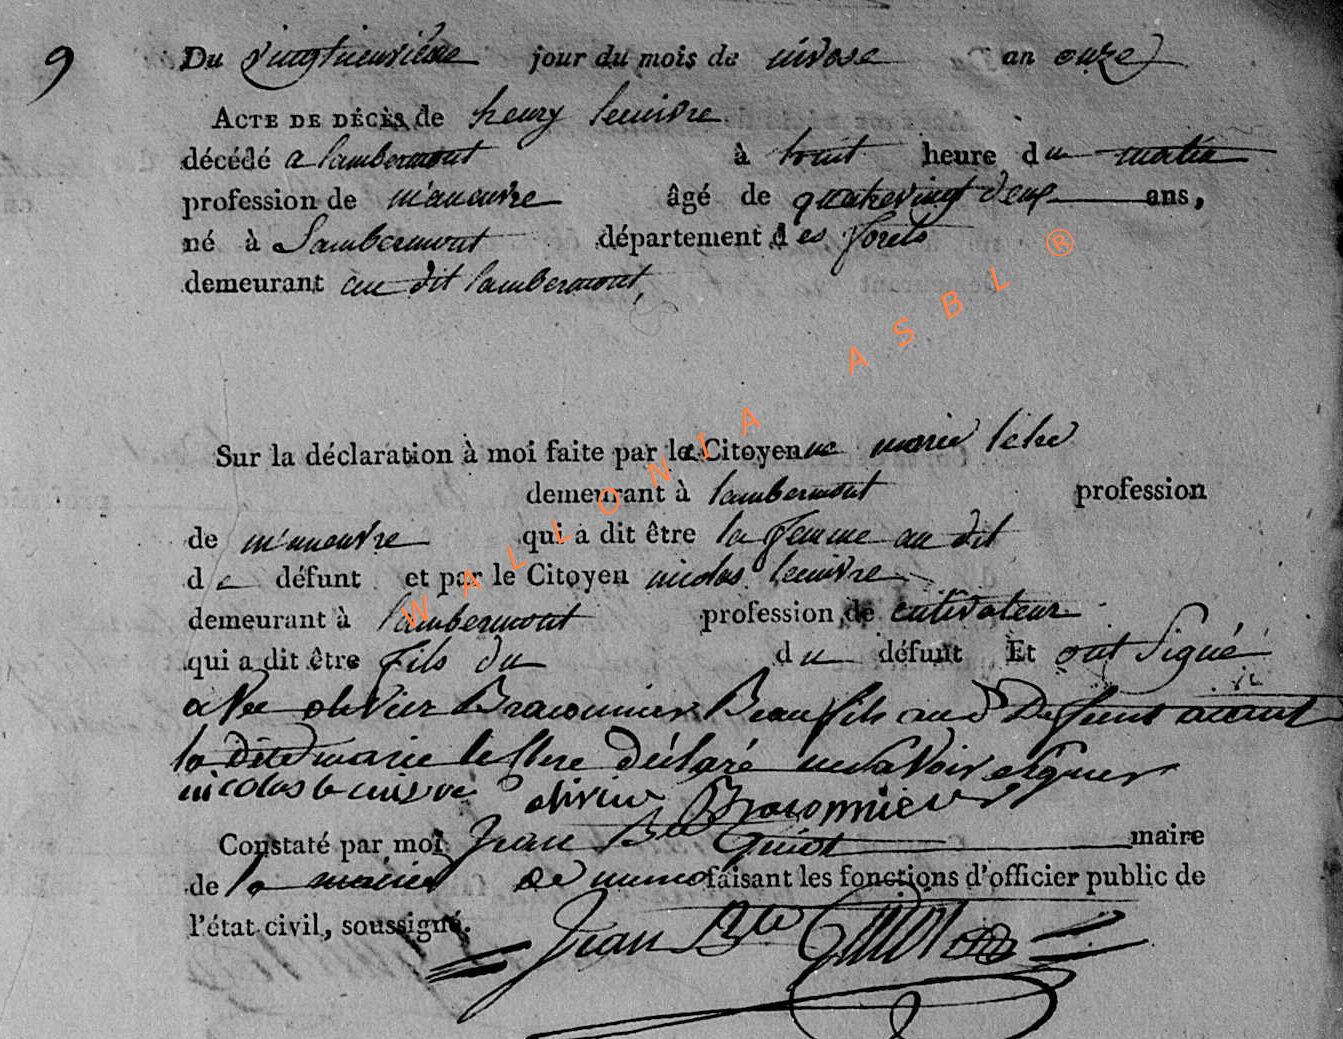 9
Du vingtneuvième jour du mois de nivose an onze
ACTE DE DÉCÈS de henry lecuivre
décédé a lambermont à huit heure du matin
profession de m'aneuvre âgé de quatrevingt deux ans,
né à Lambermont département des forêts
demeurant au dit lambermont
Sur la déclaration à moi faite par la Citoyenne marie
demeurant à lambermont profession
de m'aneuvre qui a dit être la femme au dit
de défunt et par le Citoyen nicolas lecuivre
demeurant à lambermont profession de cultivateur
qui a dit être fils du du défunt Et ont signé
avec olivier Braconnier Beaufils au d Defunt
la dite marie déclaré ne savoir signer
nicolas le cuivre olivier Braconnier
Constaté par moi Jean Bte Guiot maire
de la mairie de muno faisant les fonctions d'officier public de
l'état civil, soussigné.
Jean Bte Guiot
WALLONIA ASBL ®